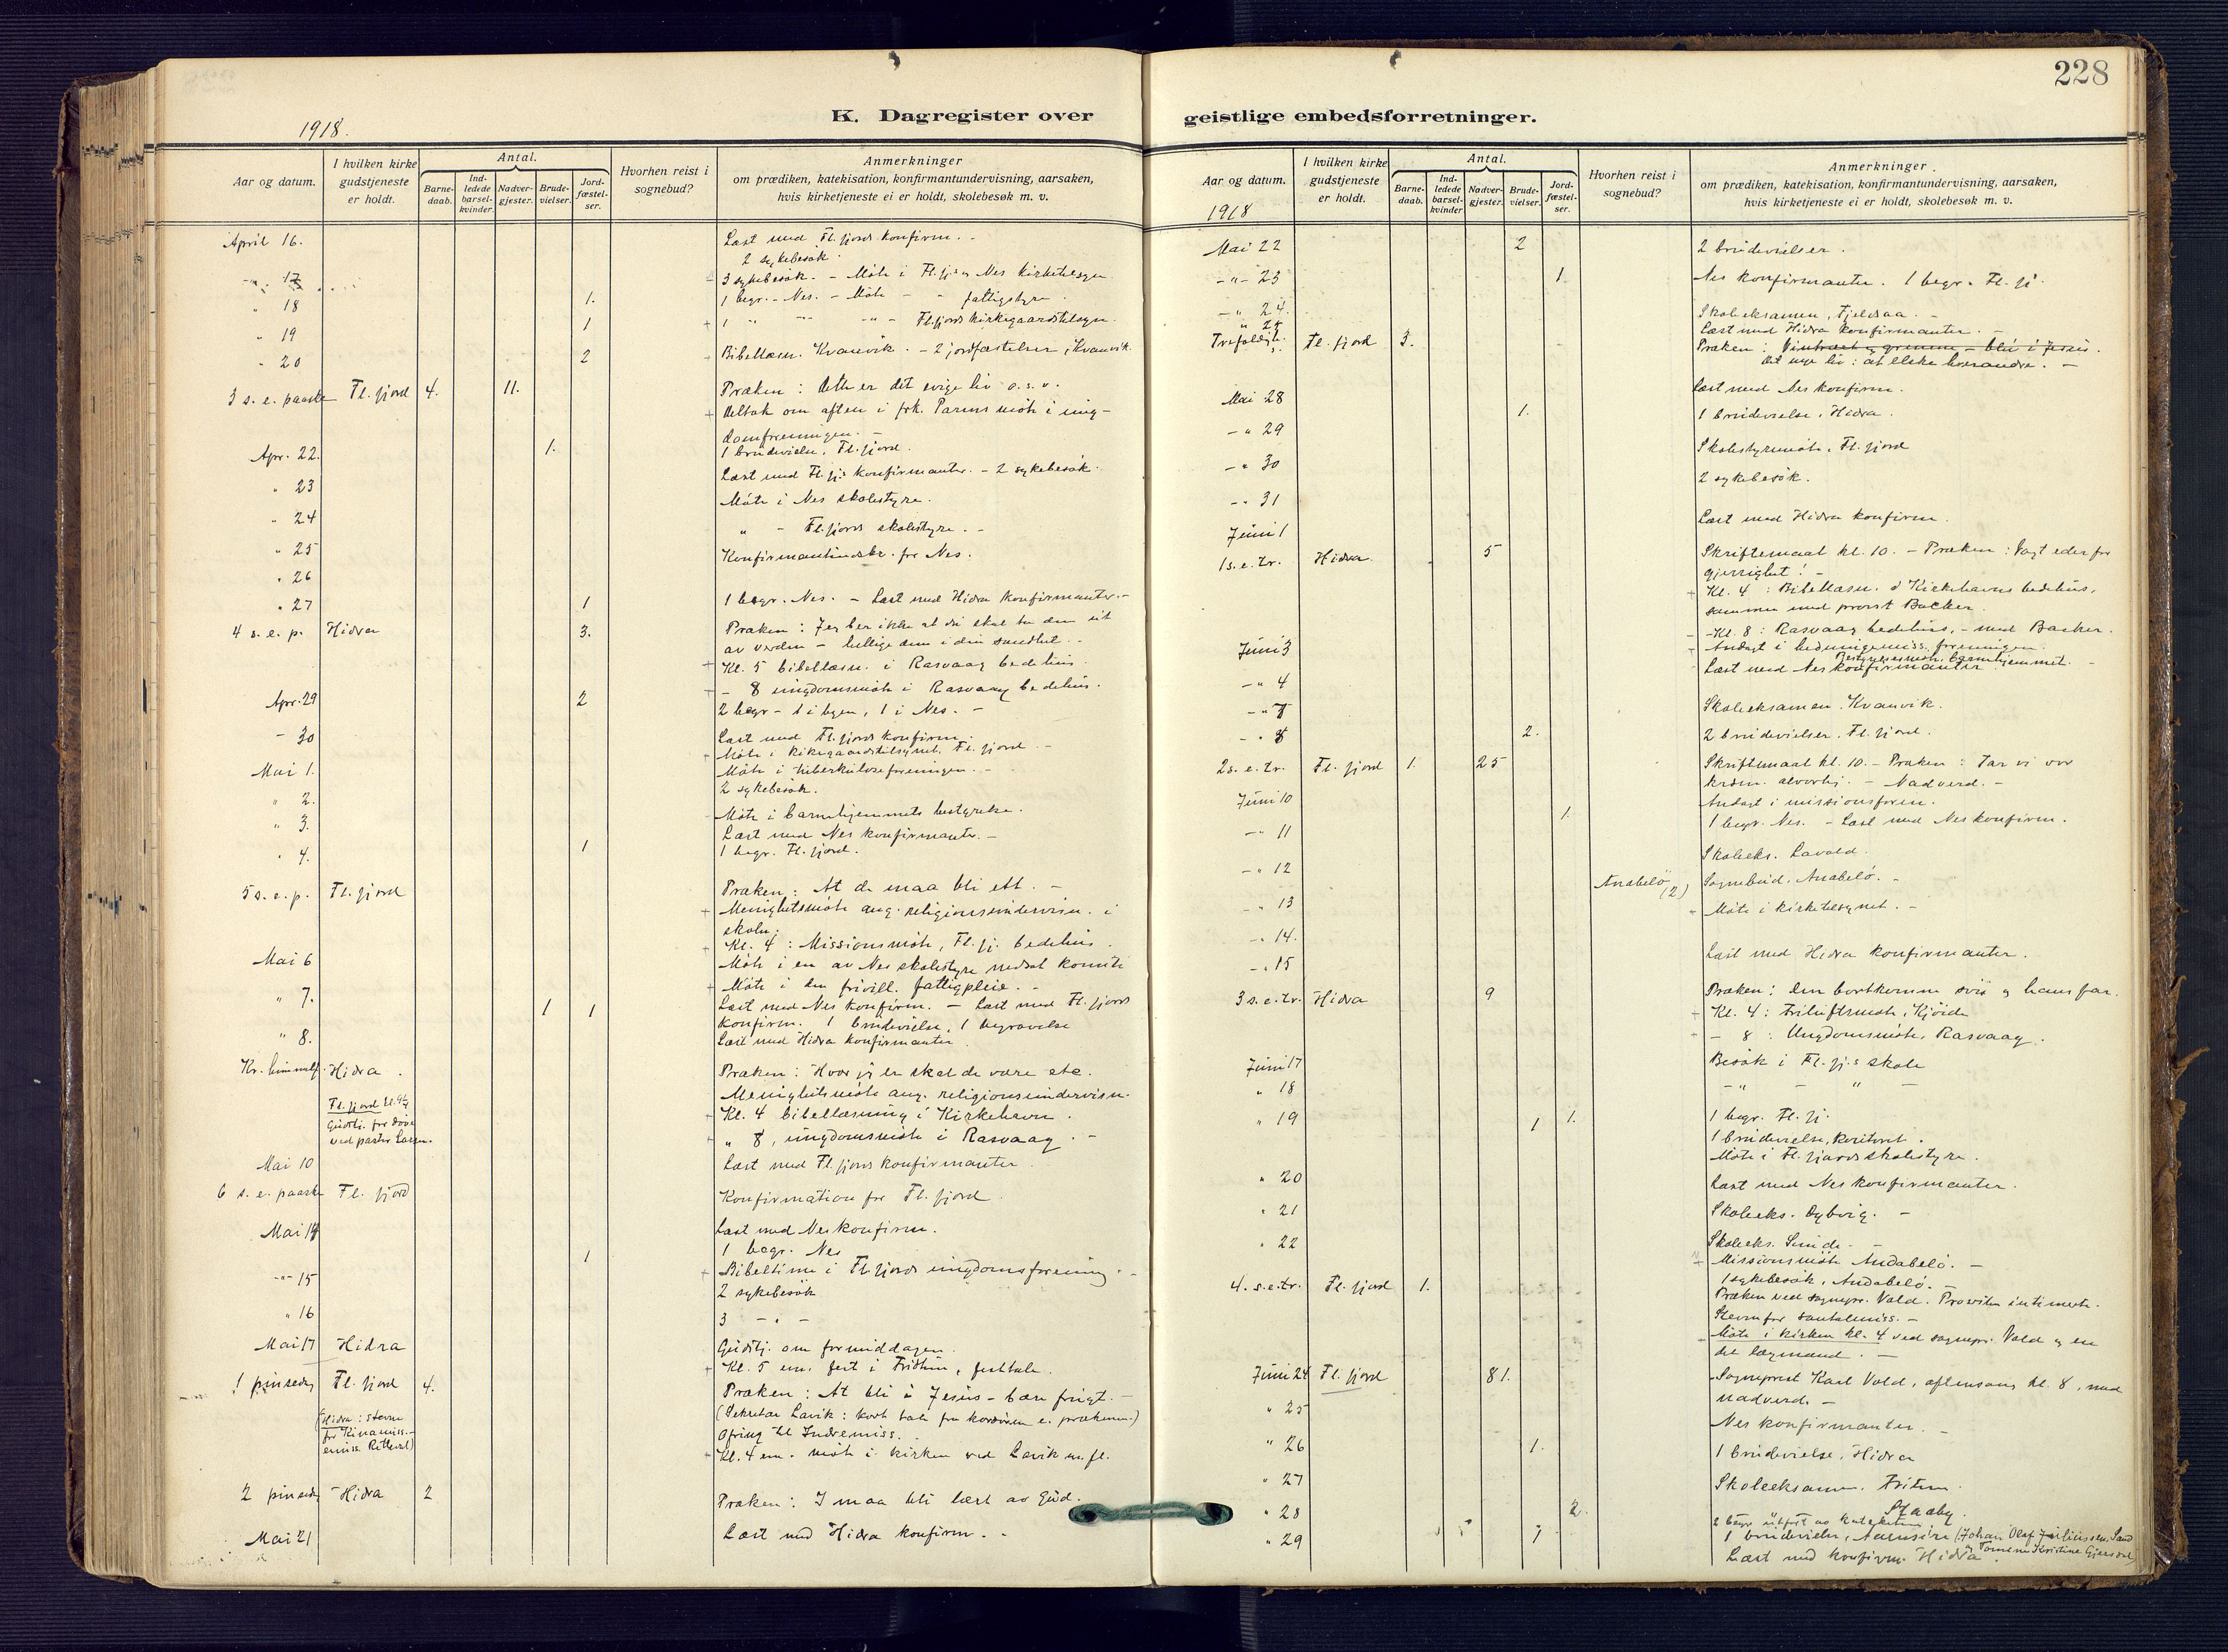 228
K. Dagregister over
geistlige embedsforretninger.
1918.
Aar og datum.
I hvilken kirke gudstjeneste er holdt.
Antal.
Barne-daab.
Ind-ledede barsel-kvinder.
Nadver-gjester.
Brude-vielser.
Jord-fæstel-ser.
Hvorhen reist i sognebud?
Anmerkninger
om prædiken, katekisation, konfirmantundervisning, aarsaken,
hvis kirketjeneste ei er holdt, skolebesøk m. v.
April 16. Læst med Fl.fjords konfirm. -
2 sykebesøk
" 17 3 sykebesøk. - Møte i Fl.fj. og Nes kirketilsyn
" 18 1. 1 begr. - Nes. - Møte - " fattigstyre.
" 19 1 1 " - " - Fl.fjords kirkegaardstilsyn.
" 20 2 Bibellæsn. Kvanvik. - 2 jordfæstelser, Kvanvik.
3 s. e. paaske Fl. fjord 4. 11. Præken: Dette er det evige liv o.s.v.
Deltok om aften i frk. møte i ung-
domforeningen. -
Apr. 22. 1. 1 brudevielse, Fl. fjord.
" 23 Læst med Fl. fj.s konfirmanter. - 2 sykebesøk.
" 24 Møte i Nes skolestyre.
" 25 " - Fl. fjords skolestyre. -
" 26 for Nes.
" 27 1 1 begr. Nes. - Læst med Hidra konfirmanter. -
4 s. e. p. Hidra 3. Præken: Jeg ber ikke at du skal ta dem ut
av verden - hellige dem i din sandhet. -
Kl. 5 bibellæsn. i Rasvaag bedehus.
- 8 ungdomsmøte i Rasvaag bedehus.
Apr. 29 2 2 begr - 1 i byen, 1 i Nes. -
- 30 Læst med Fl. fjords konfirm.
Møte i kirkegaardstilsynet, Fl. fjord -
Mai 1. Møte i tuberkuloseforeningen. -
" 2. 2 sykebesøk.
" 3. Møte i barnehjemmets bestyrelse.
Læst med Nes konfirmanter. -
" 4. 1 1 begr. Fl. fjord.
5 s. e. p. Fl. fjord Præken: At de maa bli ett. -
Menighetsmøte ang. religionsundervisn. i
skolen.
Kl. 4: Missionsmøte, Fl. fj. bedehus.
Mai 6 Møte i en av Nes skolestyre nedsat komite
Møte i den frivill. fattigpleie. -
" 7. 1 1 Læst med Nes konfirm. - Læst med Fl. fjords
konfirm. 1 brudevielse, 1 begravelse
" 8. Læst med Hidra konfirmanter.
Kr. himmelf. Hidra. Præken: Hvor jeg er skal de være etc.
Menighetsmøte ang. religionsundervisn.
Fl. fjord kl. 9
Gudstj. for døve
ved pastor
Kl. 4 bibellæsning i Kirkehavn.
" 8, ungdomsmøte i Rasvaag. -
Mai 10 Læst med Fl. fjords konfirmanter.
6 s. e. paaske Fl. fjord Konfirmation for Fl. fjord.
Mai 14 Læst med Nes konfirm.
1 1 begr. Nes
-"- 15 Bibeltime i Fl. fjords ungdomsforening. -
2 sykebesøk
" 16 3 - " -
Mai 17 Hidra Gudstj. om formiddagen.
Kl. 5 em. fest i festtale.
1 pinsedag Fl. fjord 4. Præken: At bli i Jesus - bære frugt. -
(Hidra: stevne
for Kinamiss. -
emiss.
(Sekretær Lavik: kort tale fra kordøren e. prækenen.)
Ofring til Indremiss.
Kl. 4 em. møte i kirken ved Lavik m. fl.
2 pinsedag Hidra 2 Præken: I maa bli lært av Gud.
Mai 21 Læst med Hidra konfirm. -
Aar og datum.
I hvilken kirke gudstjeneste er holdt.
Antal.
Barne-daab.
Ind-ledede barsel-kvinder
Nadver-gjester.
Brude-vielser.
Jord-fæstel-ser.
Hvorhen reist i sognebud?
Anmerkninger.
om prædiken, katekisation, konfirmantundervisning, aarsaken,
hvis kirketjeneste ei er holdt, skolebesøk m. v.
1918
Mai 22 2 2 brudevielser.
-"- 23 1. Nes konfirmanter. 1 begr. Fl. fj.
-" 24. Skoleeksamen, Fjeldsaa. -
" 25 Læst med Hidra konfirmanter. -
Trefoldigh. s. Fl. fjord 3. Præken: Vintræet og grenene - bliv i Jesus.
Det nye liv: at elske hverandre. -
Mai 28 Læst med Nes konfirm.
-" 29 1. 1 brudevielse, Hidra.
-" 30 Skolestyremøte, Fl. fjord
-" 31 2 sykebesøk.
Juni 1 Læst med Hidra konfirm.
1 s. e. tr. Hidra 5 Skriftemaal kl. 10. - Præken: Vogt eder for
gjerrighet! -
Kl. 4: Bibellæsn. i Kirkehavns bedehus,
sammen med provst Backer.
- Kl. 8: Rasvaag bedehus, - med Backer.
Juni 3 Andagt i hedningemiss. foreningen.
Bestyrelsesmøte, barnehjemmet. -
-" 4 Læst med Nes konfirmanter
-" 7 Skoleeksamen. Kvanvik.
-" 8 2. 2 brudevielser, Fl. fjord.
2 s. e. tr. Fl. fjord 1. 25 Skriftemaal kl. 10. - Præken: Tar vi vor
kristn. alvorlig. - Nadverd. -
Juni 10 Andagt i missionsforen.
-" 11 1. 1 begr. Nes. - Læst med Nes konfirm.
-" 12 Skoleeks. Lavold.
-" 13 Anabelø (2) Sognebud, Anabelø. -
-" 14. Møte i kirketilsynet. -
-" 15 Læst med Hidra konfirmanter.
3 s. e. tr. Hidra 9 Præken: Den bortkomne søn og hans far.
Kl. 4: Friluftsmøte,
- 8: Ungdomsmøte, Rasvaag.
Juni 17 Besøk i Fl. fj.s skole
" 18 - " - " -
" 19 1 1. 1 begr. Fl. fj.
1 brudevielse, kontoret.
Møte i Fl. fjords skolestyre.
" 20 Læst med Nes konfirmanter.
" 21 Skoleeks. Dybvig. -
" 22 Skoleeks. Sunde. -
Missionsmøte Andabelø. -
1 sykebesøk, Andabelø. -
4. s. e. tr. Fl. fjord 1. Præken ved sognepr. Vold.
Stevne for santalmiss. -
Møte i kirken kl. 4 ved sognepr. Vold og en
del lægmænd. -
Juni 24 Fl. fjord 81. Sogneprest Karl Vold, aftensang kl. 8, med
nadverd. -
" 25 Nes konfirmanter. -
" 26 1. 1 brudevielse, Hidra
" 27 Skoleeksamen,
" 28 2.
2 begr. utført av
" 29 1 1 brudevielse, (Johan Olaf Juliussen Sand
og Kristine
Læst med konfirm. Hidra.